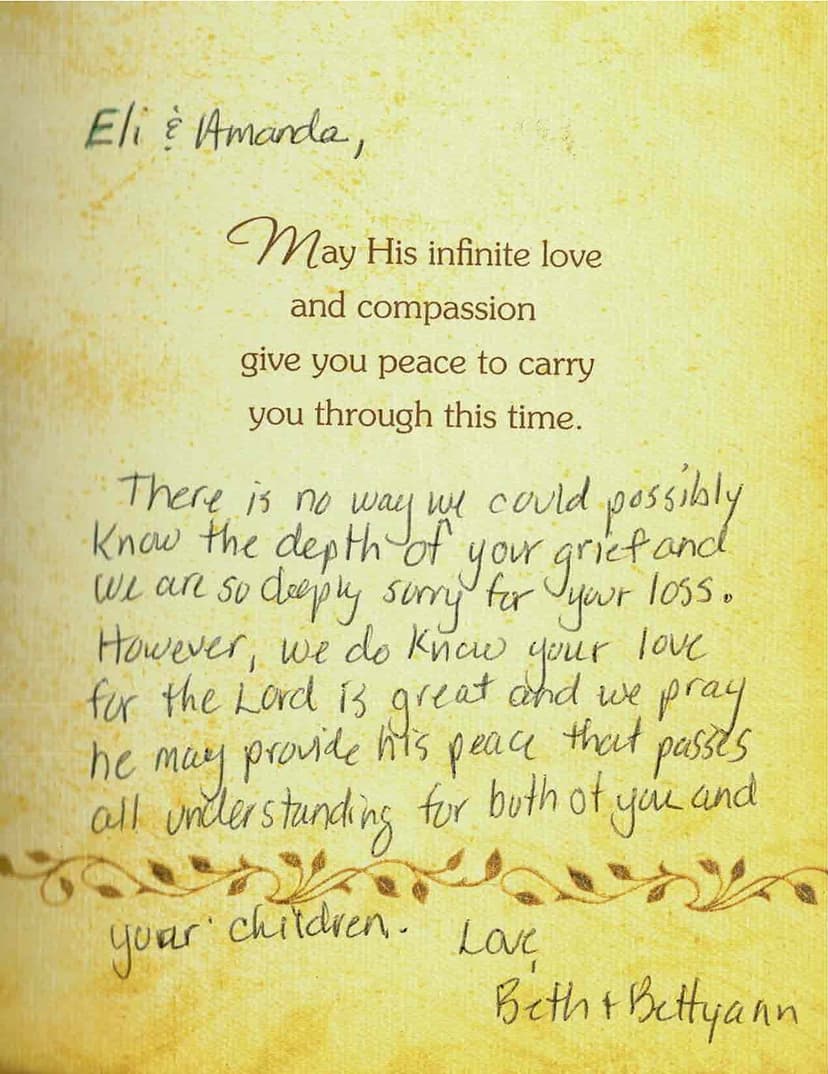 Eli & Amanda,
May His infinite love
and compassion
give you peace to carry
you through this time.
There is no way we could possibly
know the depth of your grief and
we are so deeply sorry for your loss.
However, we do know your love
for the Lord is great and we pray
he may provide his peace that passes
all understanding for both of you and
your children. Love,
Beth + Bettyann